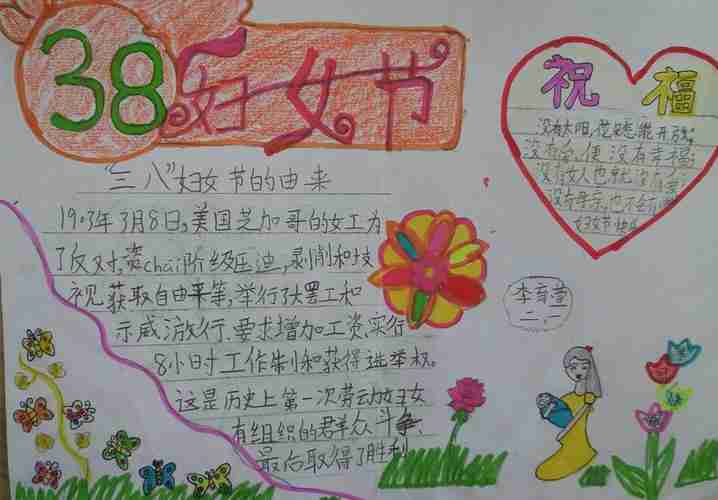 38妇女节
"三八"妇女节的由来
1903年3月8日,美国芝加哥的女工为
了反对,资chai阶级压迫,剥削和歧
视 获取自由平等,举行了大罢工和
示威游行、要求增加工资、实行
8小时工作制和获得选举权。
这是历史上第一次劳动妇女
有组织的群众斗争、
最后取得了胜利
祝福
没有太阳,花
没有 便没有幸福;
没有女人也就没有
没有母亲,也不会有
妇女节快乐
李育萱
二.一